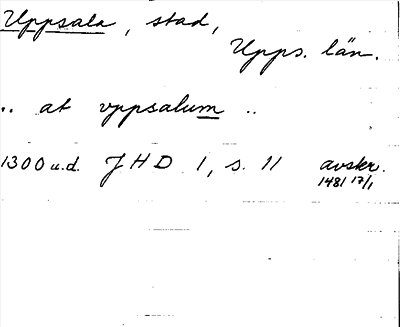 Uppsala, stad,
Upps. län.
.. at vppsalum ..
1300 u.d. JHD 1, s. 11 avskr.
1481 17/1